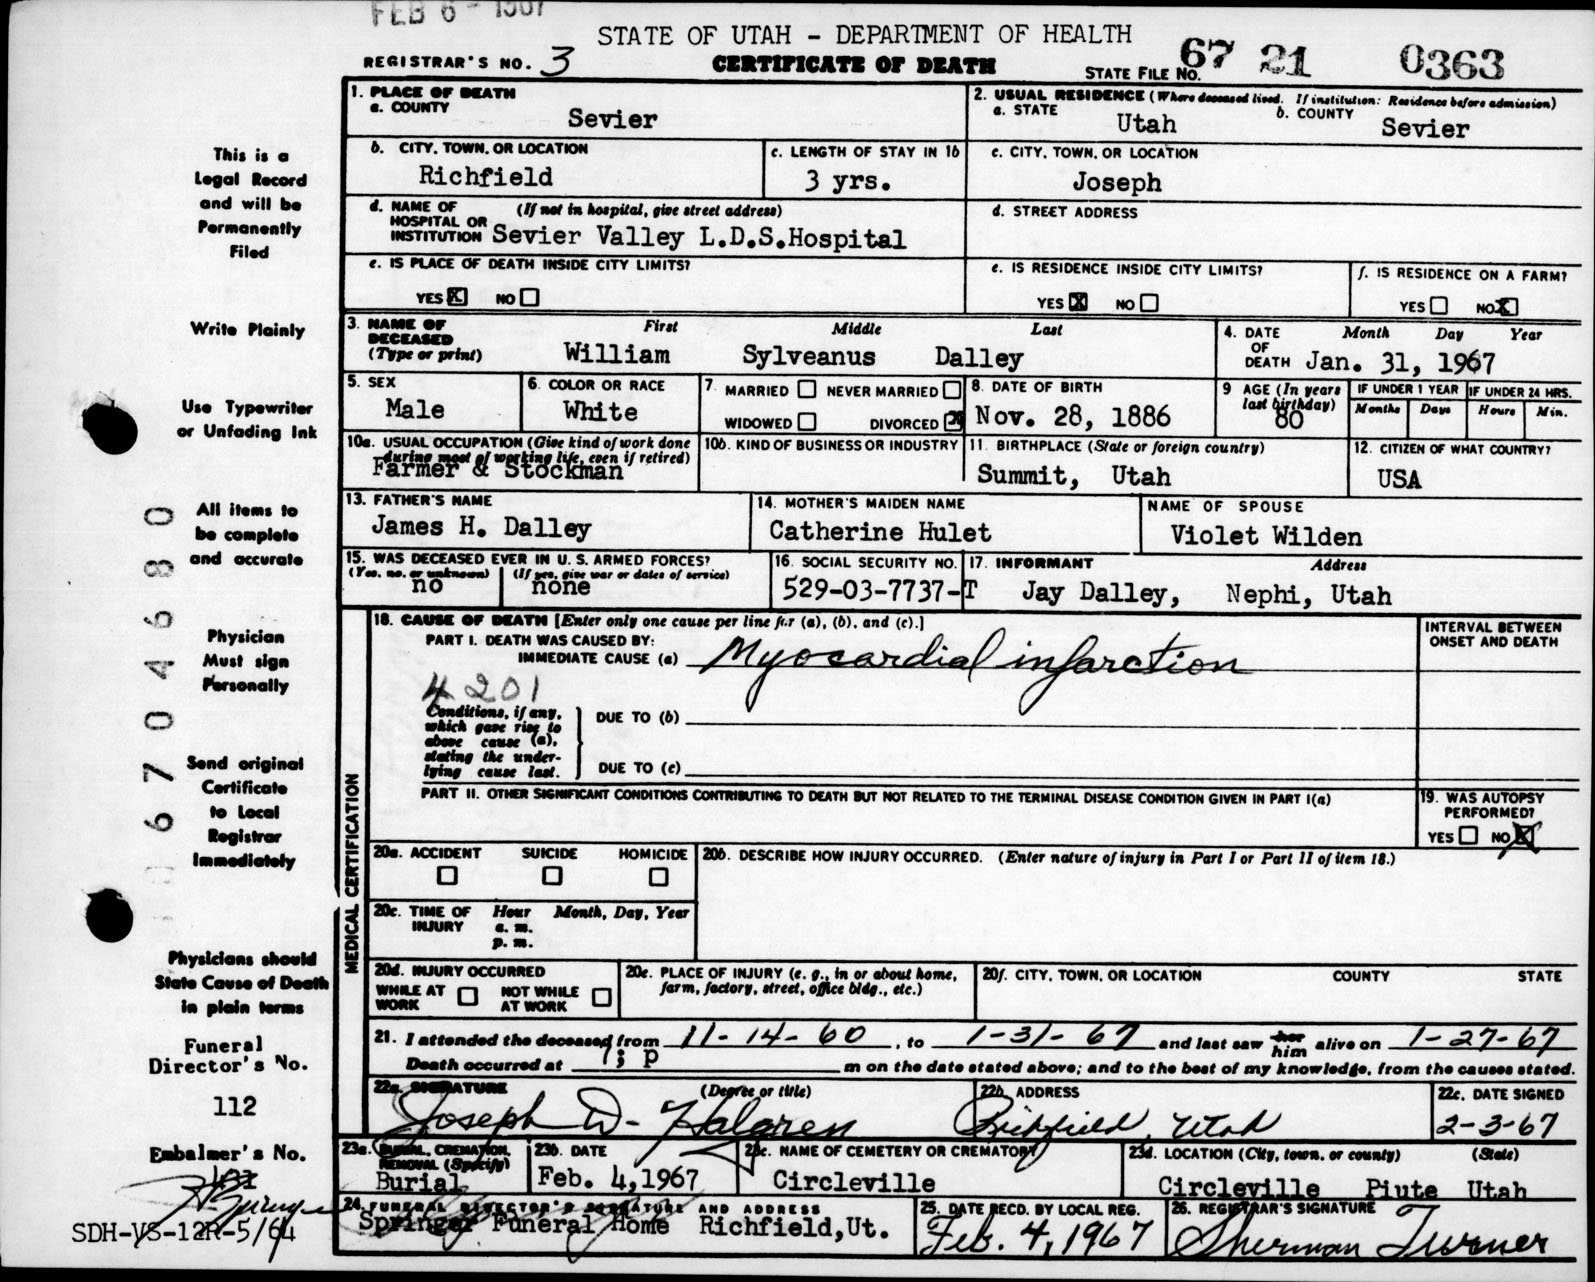 FEB 6 - 1967
STATE OF UTAH - DEPARTMENT OF HEALTH
REGISTRAR'S NO. 3 CERTIFICATE OF DEATH STATE FILE NO. 67 21 0363
This is a
Legal Record
and will be
Permanently
Filed
Write Plainly
Use Typewriter
or Unfading Ink
All items to
be complete
and accurate
Physician
Must sign
Personally
Send original
Certificate
to Local
Registrar
Immediately
Physicians should
State Cause of Death
in plain terms
Funeral
Director's No.
112
Embalmer's No.
SDH-VS-12R-5/64
0670046800
1. PLACE OF DEATH
a. COUNTY
Sevier
2. USUAL RESIDENCE (Where deceased lived. If institution: Residence before admission)
a. STATE Utah b. COUNTY Sevier
b. CITY, TOWN, OR LOCATION
Richfield
c. LENGTH OF STAY IN 1b
3 yrs.
c. CITY, TOWN, OR LOCATION
Joseph
d. NAME OF (If not in hospital, give street address)
HOSPITAL OR
INSTITUTION Sevier Valley L.D.S.Hospital
d. STREET ADDRESS
e. IS PLACE OF DEATH INSIDE CITY LIMITS?
YES X NO
e. IS RESIDENCE INSIDE CITY LIMITS?
YES X NO
f. IS RESIDENCE ON A FARM?
YES NO X
3. NAME OF First Middle Last
DECEASED
(Type or print) William Sylveanus Dalley
4. DATE Month Day Year
OF
DEATH Jan. 31, 1967
5. SEX
Male
6. COLOR OR RACE
White
7. MARRIED NEVER MARRIED
WIDOWED DIVORCED X
8. DATE OF BIRTH
Nov. 28, 1886
9 AGE (In years
last birthday)
80
IF UNDER 1 YEAR IF UNDER 24 HRS.
Months Days Hours Min.
10a. USUAL OCCUPATION (Give kind of work done
during most of working life, even if retired)
Farmer & Stockman
10b. KIND OF BUSINESS OR INDUSTRY
11. BIRTHPLACE (State or foreign country)
Summit, Utah
12. CITIZEN OF WHAT COUNTRY?
USA
13. FATHER'S NAME
James H. Dalley
14. MOTHER'S MAIDEN NAME
Catherine Hulet
NAME OF SPOUSE
Violet Wilden
15. WAS DECEASED EVER IN U. S. ARMED FORCES?
(Yes, no, or unknown) (If yes, give war or dates of service)
no none
16. SOCIAL SECURITY NO.
529-03-7737-T
17. INFORMANT Address
Jay Dalley, Nephi, Utah
MEDICAL CERTIFICATION
18. CAUSE OF DEATH [Enter only one cause per line for (a), (b), and (c).]
PART I. DEATH WAS CAUSED BY:
IMMEDIATE CAUSE (a) Myocardial infarction
INTERVAL BETWEEN
ONSET AND DEATH
4201
Conditions, if any,
which gave rise to
above cause (a),
stating the under-
lying cause last.
DUE TO (b)
DUE TO (c)
PART II. OTHER SIGNIFICANT CONDITIONS CONTRIBUTING TO DEATH BUT NOT RELATED TO THE TERMINAL DISEASE CONDITION GIVEN IN PART I(a)
19. WAS AUTOPSY
PERFORMED?
YES NO X
20a. ACCIDENT SUICIDE HOMICIDE
20b. DESCRIBE HOW INJURY OCCURRED. (Enter nature of injury in Part I or Part II of item 18.)
20c. TIME OF Hour Month, Day, Year
INJURY a. m.
p. m.
20d. INJURY OCCURRED
WHILE AT NOT WHILE
WORK AT WORK
20e. PLACE OF INJURY (e. g., in or about home,
farm, factory, street, office bldg., etc.)
20f. CITY, TOWN, OR LOCATION COUNTY STATE
21. I attended the deceased from 11-14-60, to 1-31-67 and last saw her him alive on 1-27-67
Death occurred at p m on the date stated above; and to the best of my knowledge, from the causes stated.
22a. SIGNATURE (Degree or title)
Joseph W. Halgren
22b. ADDRESS
Richfield, Utah
22c. DATE SIGNED
2-3-67
23a. BURIAL, CREMATION,
REMOVAL (Specify)
Burial
23b. DATE
Feb. 4,1967
23c. NAME OF CEMETERY OR CREMATORY
Circleville
23d. LOCATION (City, town, or county) (State)
Circleville Piute Utah
24. FUNERAL DIRECTOR'S SIGNATURE AND ADDRESS
Springer Funeral Home Richfield,Ut.
25. DATE RECD. BY LOCAL REG.
Feb. 4, 1967
26. REGISTRAR'S SIGNATURE
Sherman Turner